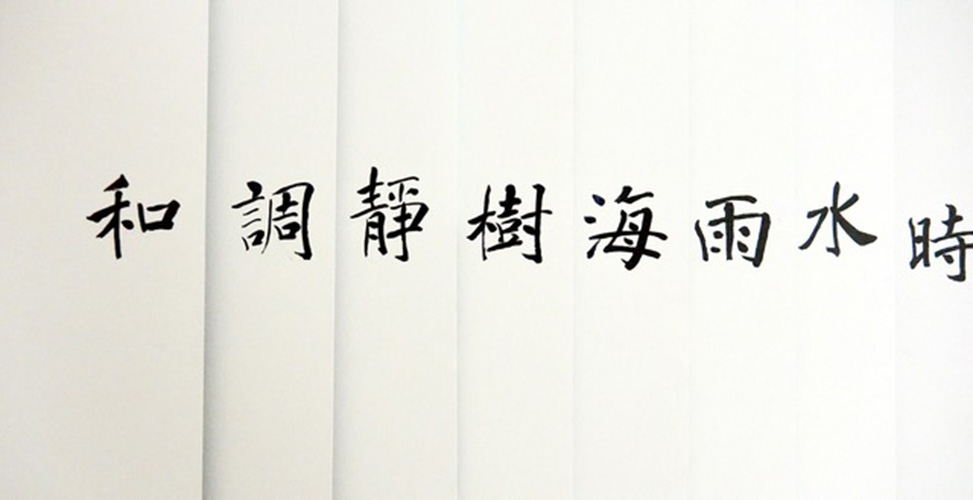 和調靜樹海雨水時